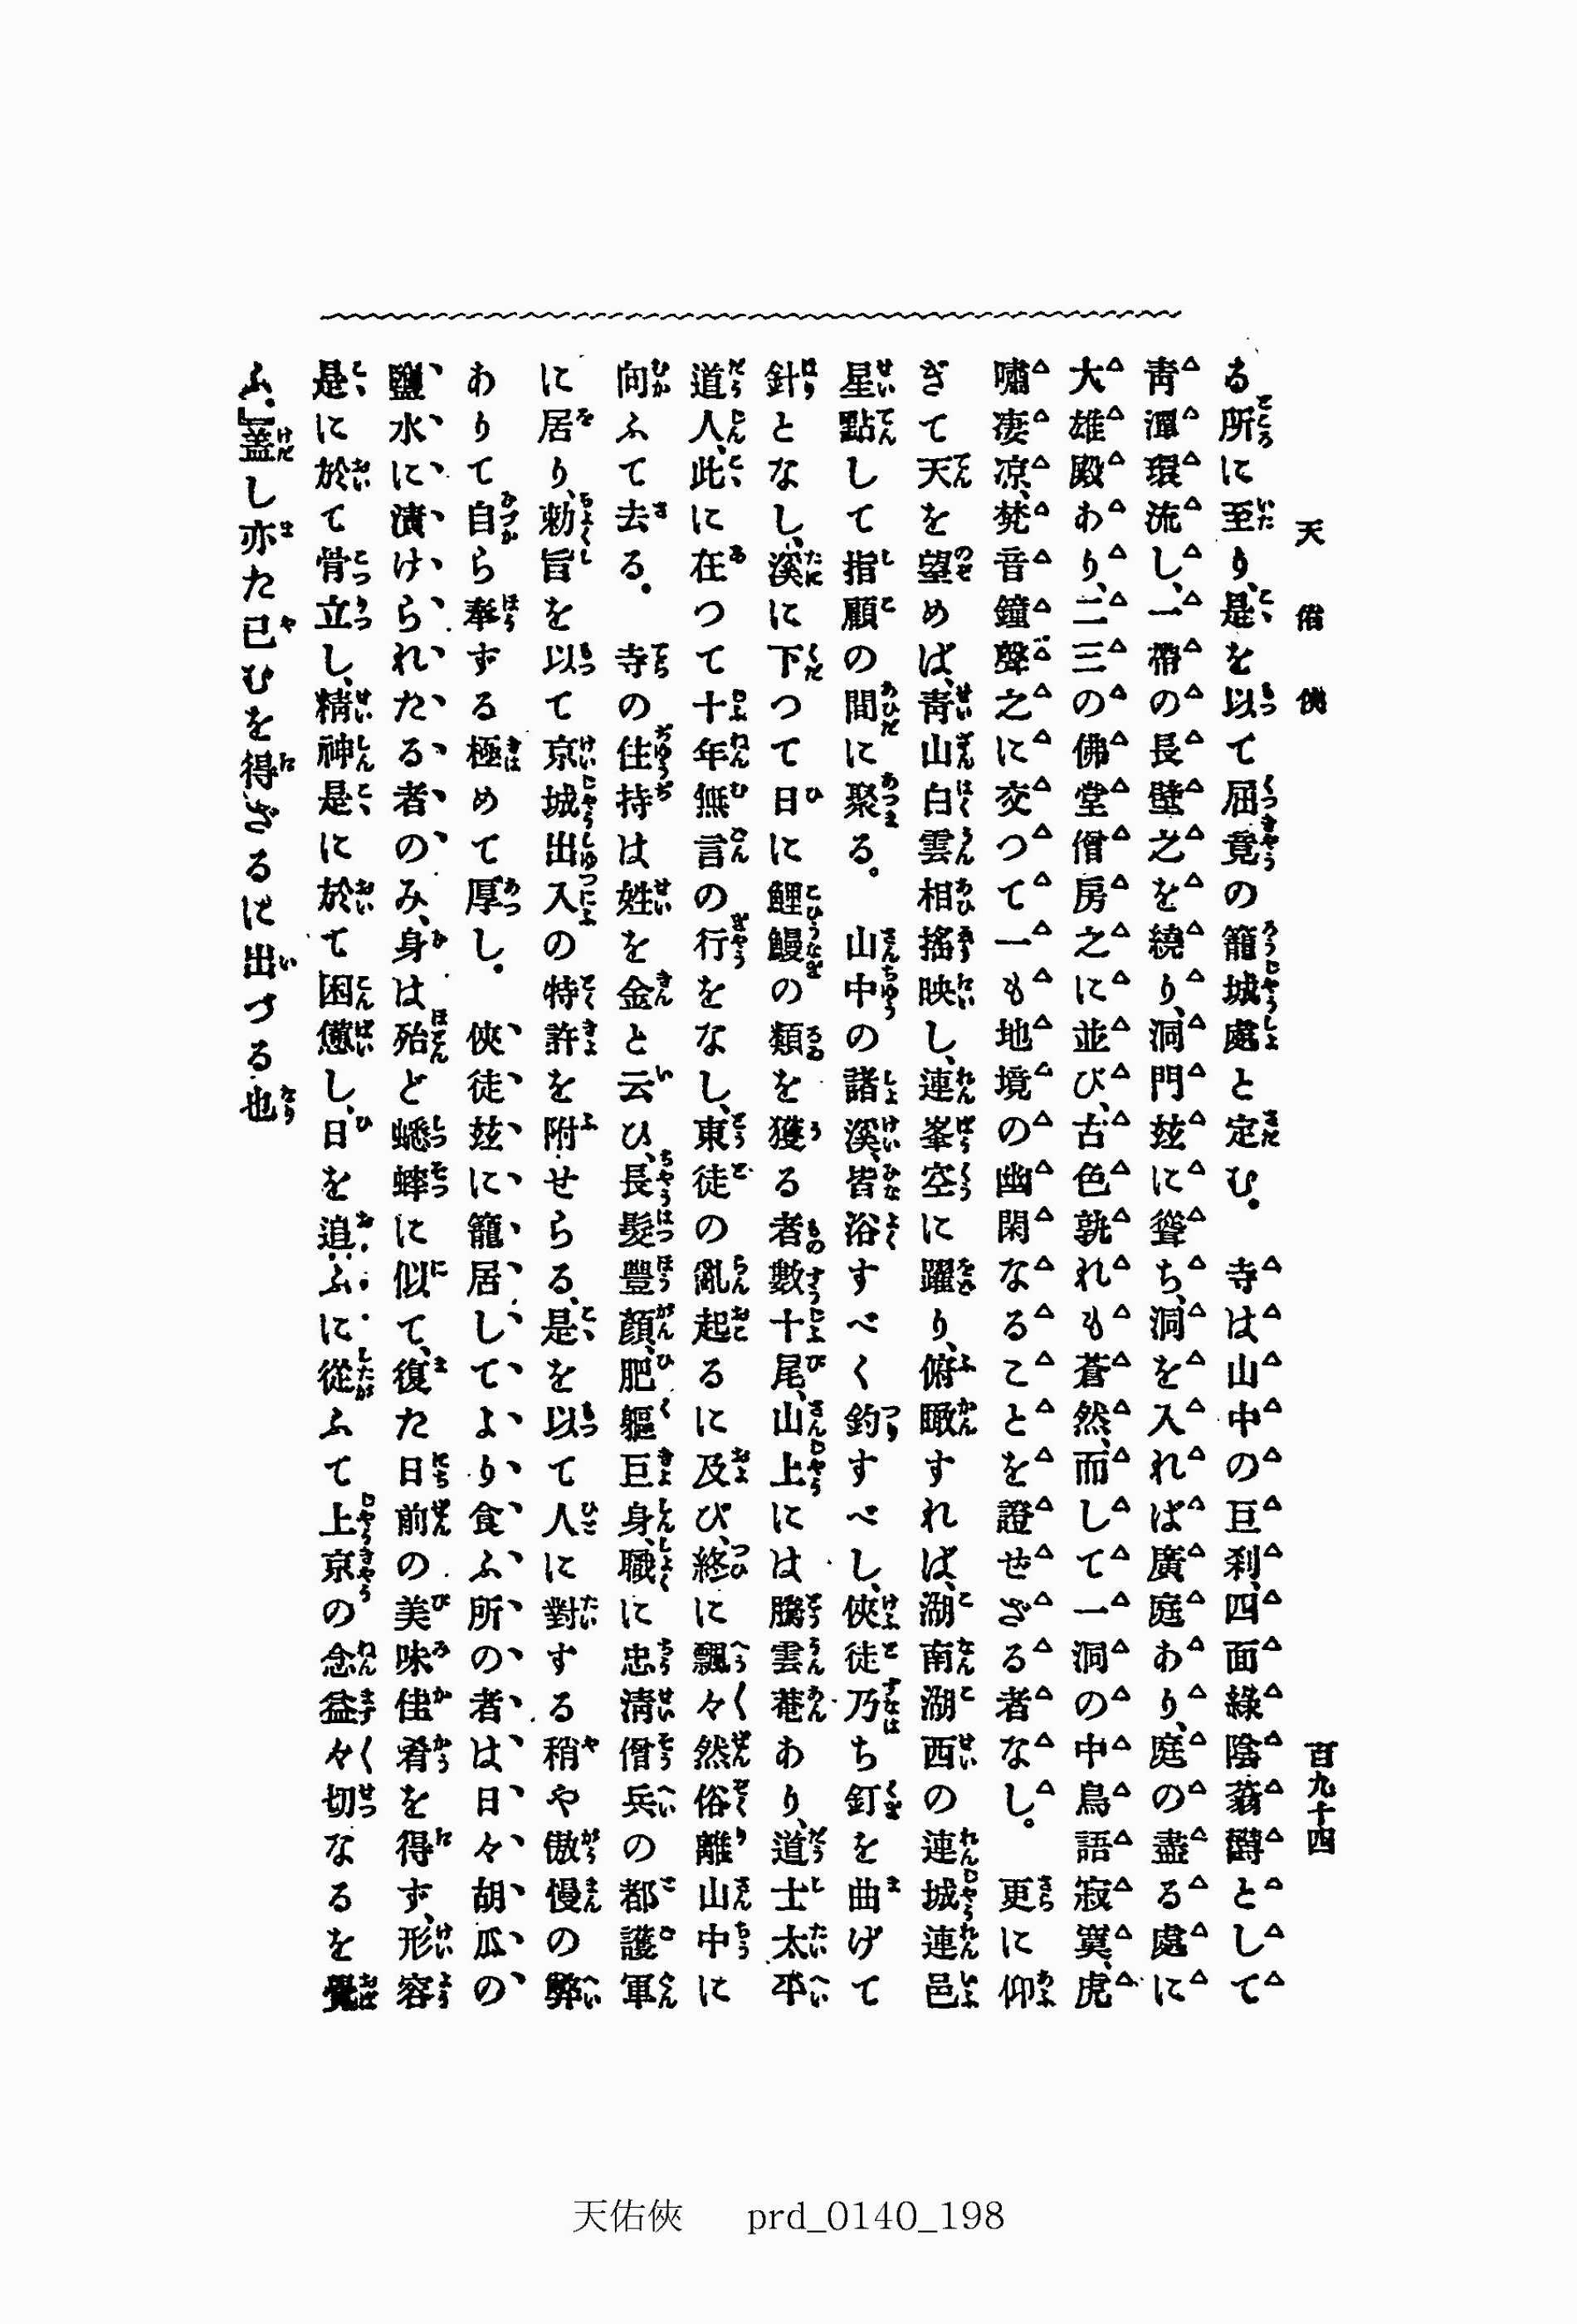 天佑俠
百九十四
る所に至り、是を以て屈竟の籠城處と定む。寺は山中の巨刹、四面綠陰蓊鬱として
靑潭環流し、一帶の長壁之を繞り、洞門玆に聳ち、洞を入れば廣庭あり、庭の盡る處に
大雄殿あり、二三の佛堂僧房之に並び、古色孰れも蒼然、而して一洞の中鳥語寂寞、虎
嘯凄凉、梵音鐘聲之に交つて一も地境の幽閑なることを證せざる者なし。更に仰
ぎて天を望めば、靑山白雲相搖映し、連峯空に躍り、俯瞰すれば、湖南湖西の連城連邑
星點して指顧の間に聚る。山中の諸溪、皆浴すべく釣すべし、俠徒乃ち釘を曲げて
針となし、溪に下つて日に鯉鰻の類を獲る者數十尾、山上には騰雲菴あり、道士太平
道人、此に在つて十年無言の行をなし、東徒の亂起るに及び、終に飄々然俗離山中に
向ふて去る。寺の住持は姓を金と云ひ、長髮豐顏、肥軀巨身、職に忠淸僧兵の都護軍
に居り、勅旨を以て京城出入の特許を附せらる、是を以て人に對する稍や傲慢の弊
ありて自ら奉ずる極めて厚し。俠徒玆に籠居してより食ふ所の者は日々胡瓜の
鹽水に漬けられたる者のみ、身は殆ど蟋蟀に似て、復た日前の美味佳肴を得ず、形容
是に於て骨立し、精神是に於て困憊し、日を追ふに從ふて上京の念益々切なるを覺
ふ、」蓋し亦た已むを得ざるに出づる也
天佑俠 prd_0140_198